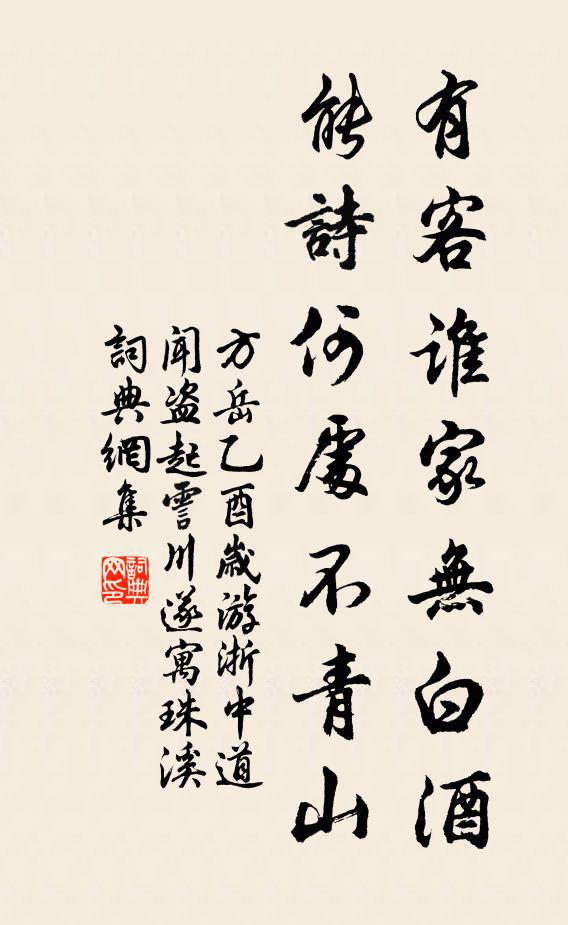 有客谁家無白酒
能詩何處不青山
方岳乙酉歲游浙中道
聞盗起霅川遂寓珠溪
詞典網集
詞典网印